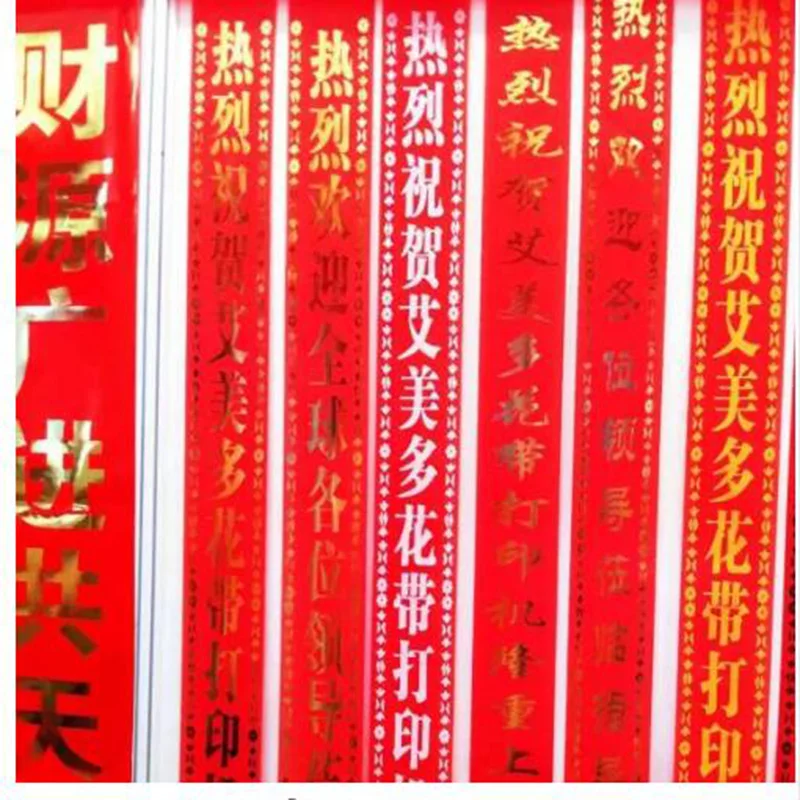 财源广进共天
热烈祝贺艾美多花带打印机
热烈欢迎全球各位领导莅
热烈祝贺艾美多花带打印机
热烈祝贺艾美多花带打印机隆重上
热烈欢迎各位领导莅临指导
热烈祝贺艾美多花带打印